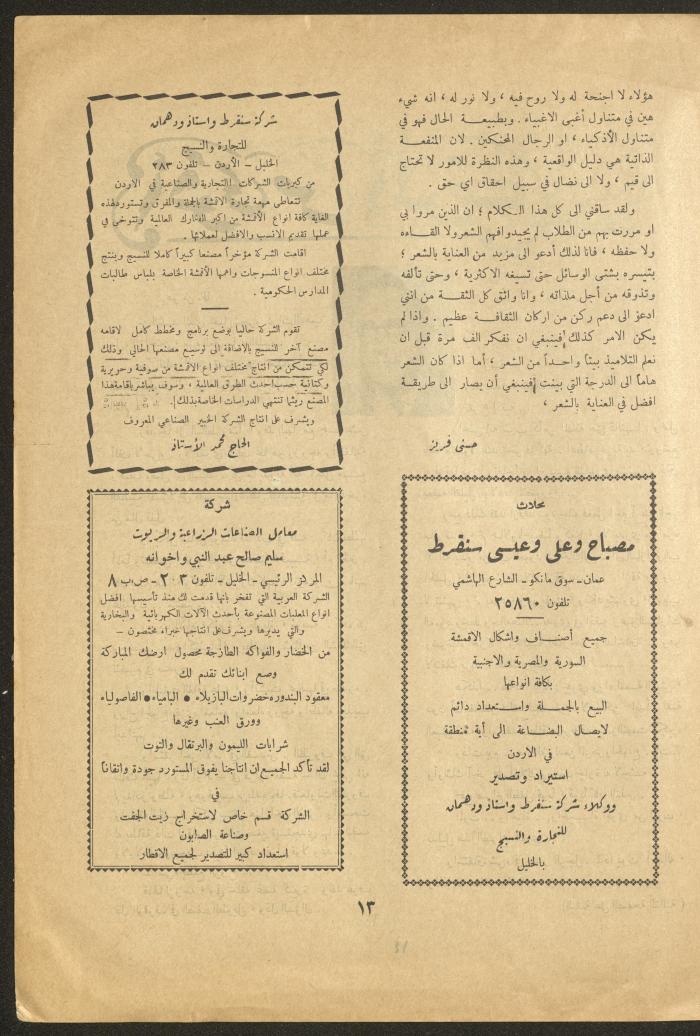 هؤلاء لا اجنحة له ولا روح فيه ، ولا نور له ، انه شيء
هين في متناول أغبى الاغبياء . وبطبيعة الحال فهو في
متناول الأذكياء ، او الرجال المحنكين . لان المنفعة
الذاتية هي دليل الواقعية ، وهذه النظرة للامور لا تحتاج
الى قيم ، ولا الى نضال في سبيل احقاق اي حق .
ولقد ساقني الى كل هذا الكلام ؛ ان الذين مروا بي
او مررت بهم من الطلاب لم يجيدوا فهم الشعر ولا القاءه
ولا حفظه ، فانا لذلك أدعو الى مزيد من العناية بالشعر ؛
بتيسره بشتى الوسائل حتى تسيغه الاكثرية ، وحتى تألفه
وتذوقه من أجل ملذاته ، وانا واثق كل الثقة من انني
ادعو الى دعم ركن من اركان الثقافة عظيم . واذا لم
يكن الامر كذلك فينبغي ان نفكر الف مرة قبل ان
نعلم التلاميذ بيتاً واحداً من الشعر ، أما اذا كان الشعر
هاماً الى الدرجة التي بينت فينبغي أن يصار الى طريقة
افضل في العناية بالشعر ،
حسني فريز
محلات
مصباح وعلي وعيسى سنقرط
عمان ـ سوق مانكو ـ الشارع الهاشمي
تلفون ٢٥٨٦٠
جميع أصناف واشكال الاقمشة
السورية والمصرية والاجنبية
بكافة انواعها
البيع بالجملة واستعداد دائم
لايصال البضاعة الى أية منطقة
في الاردن
استيراد وتصدير
ووكلاء شركة سنقرط واستاذ ودهمان
للتجارة والنسيج
بالخليل
شركة سنقرط واستاذ ودهمان
للتجارة والنسيج
الخليل – الأردن – تلفون ٢٨٣
من كبريات الشركات التجارية والصناعية في الاردن
تتعاطى مهمة تجارة الاقمشة بالجملة والمفرق وتستورد لهذه
الغاية كافة انواع الأقمشة من اكبر المصادر العالمية وتتوخى في
عملها تقديم الانسب والافضل لعملائها .
اقامت الشركة مؤخراً مصنعا كبيراً كاملا للنسيج وينتج
مختلف انواع المنسوجات واهمها الأقمشة الخاصة بلباس طالبات
المدارس الحكومية .
تقوم الشركة حاليا بوضع برنامج ومخطط كامل لاقامه
مصنع آخر للنسيج بالإضافة الى توسيع مصنعها الحالي وذلك
لكي تتمكن من انتاج مختلف انواع الاقمشة من صوفية وحريرية
وكتانية حسب احدث الطرق العالمية ، وسوف يباشر باقامة هذا
المصنع ريثما تنتهي الدراسات الخاصة بذلك .
ويشرف على انتاج الشركة الخبير الصناعي المعروف
الحاج محمد الأستاذ
شركة
معامل الصناعات الزراعية والزيوت
سليم صالح عبد النبي واخوانه
المركز الرئيسي ـ الخليل ـ تلفون ٢٠٣ ـ ص.ب ٨
الشركة العربية التي تفخر بانها قدمت لك منذ تأسيسها افضل
انواع المعلبات المصنوعة بأحدث الآلات الكهربائية والبخارية
والتي يديرها ويشرف على انتاجها خبراء مختصون –
من الخضار والفواكه الطازجة محصول ارضك المباركة
وصنع ابنائك تقدم لك
معقود البندوره خضروات البازيلاء • البامياء • الفاصولياء
وورق العنب وغيرها
شرابات الليمون والبرتقال والتوت
لقد تأكد الجميع ان انتاجنا يفوق المستورد جودة واتقاناً
في
الشركة قسم خاص لاستخراج زيت الجفت
وصناعة الصابون
استعداد كبير للتصدير لجميع الاقطار
١٣